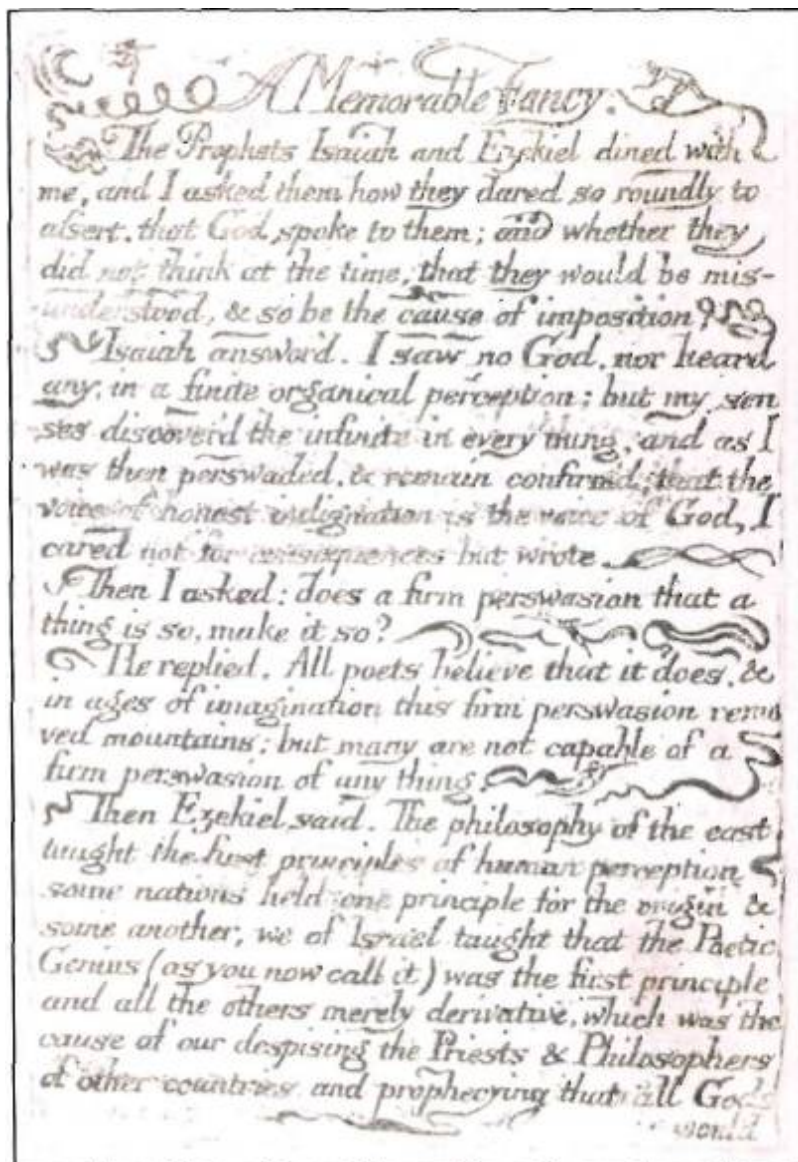 A Memorable Fancy.
The Prophets Isaiah and Ezekiel dined with
me, and I asked them how they dared so roundly to
assert. that God spoke to them; and whether they
did not think at the time, that they would be mis-
understood, & so be the cause of imposition?
Isaiah answer'd. I saw no God. nor heard
any, in a finite organical perception; but my sen
ses discover'd the infinite in every thing, and as I
was then perswaded. & remain confirmd; that the
voice of honest indignation is the voice of God, I
cared not for consequences but wrote.
Then I asked: does a firm perswasion that a
thing is so, make it so?
He replied. All poets believe that it does, &
in ages of imagination this firm perswasion remo
ved mountains; but many are not capable of a
firm perswasion of any thing.
Then Ezekiel said. The philosophy of the east
taught the first principles of human perception
some nations held one principle for the origin &
some another, we of Israel taught that the Poetic
Genius (as you now call it) was the first principle
and all the others merely derivative, which was the
cause of our despising the Priests & Philosophers
of other countries, and prophecying that all Gods
would